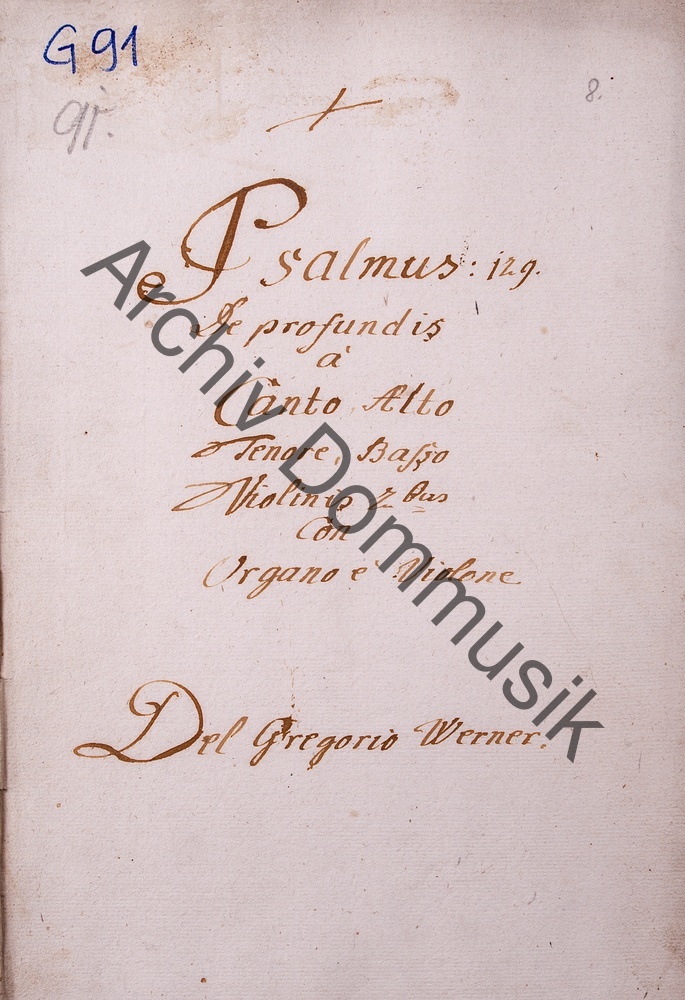 G 91
8.
91.
Psalmus: 129.
De profundis
à
Canto, Alto
Tenore, Basso
Violinis 2bus
Con
Organo e Violone
Del Gregorio Werner.
Archiv Dommusik